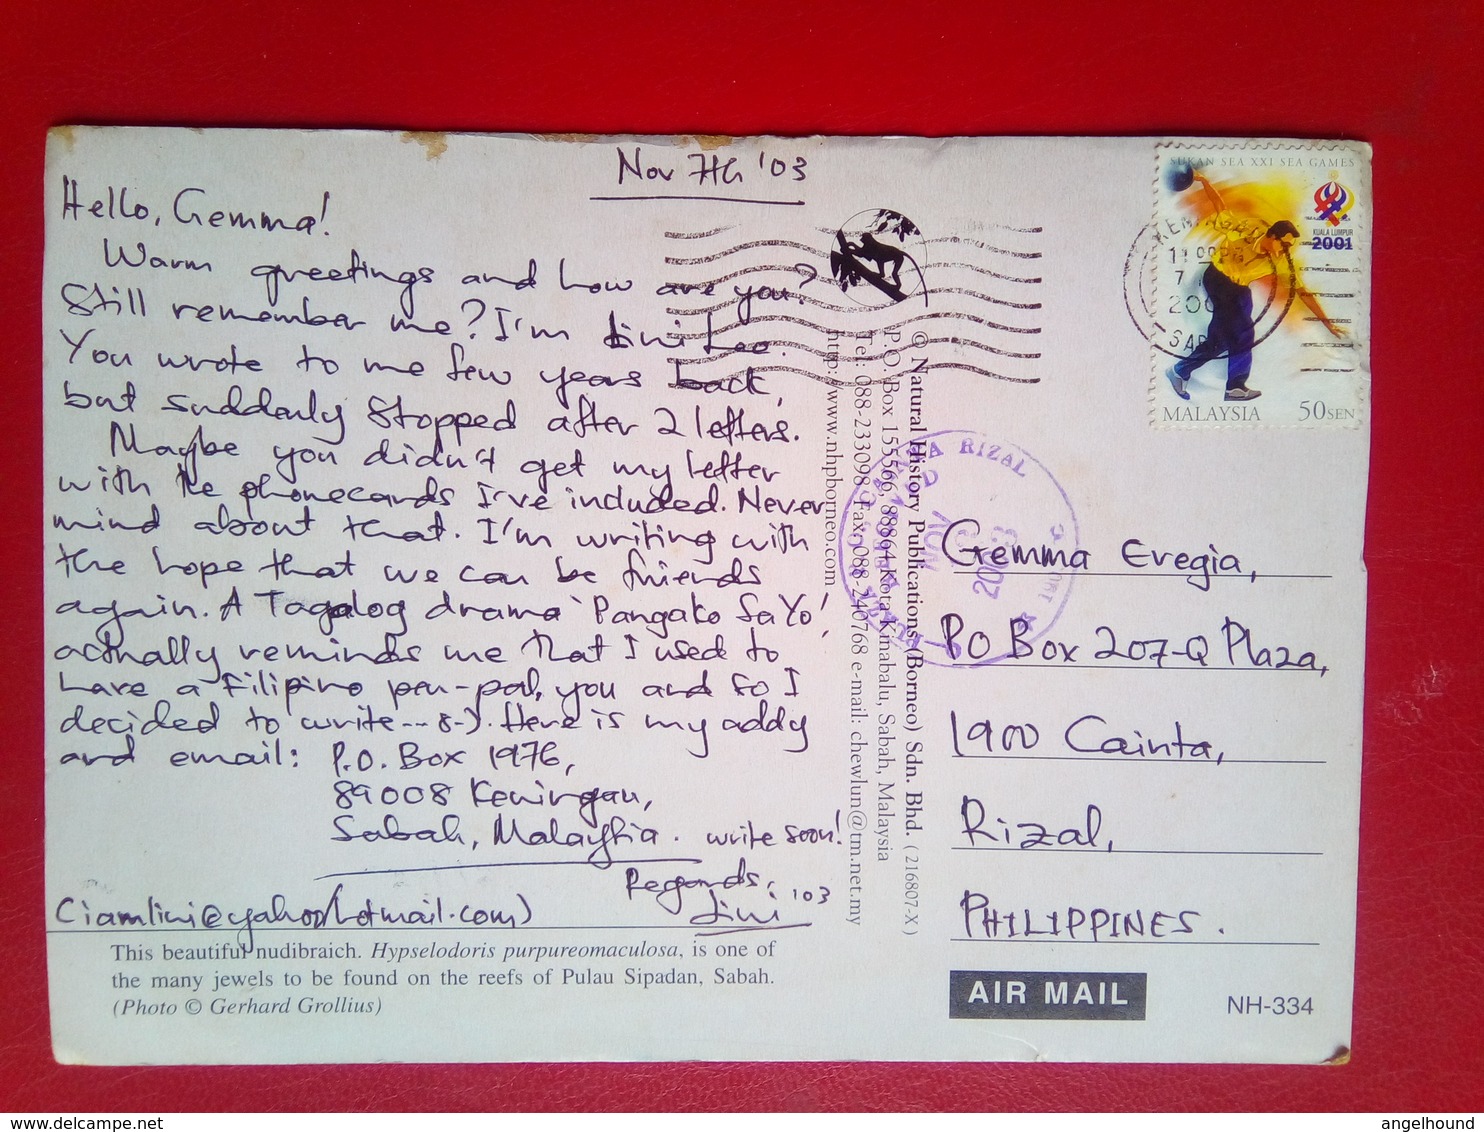 Nov 7th '03
Hello, Gemma!
Warm greetings and how are you?
Still remember me? I'm Lini Lee.
You wrote to me few years back,
but suddenly stopped after 2 letters.
Maybe you didn't get my letter
with the phonecards I've included. Never
mind about that. I'm writing with
the hope that we can be friends
again. A Tagalog drama 'Pangako Sa Yo'
actually reminds me that I used to
have a Filipino pen-pal, you and so I
decided to write--- 8-). Here is my addy
and email: P.O. Box 1976,
89008 Keningau,
Sabah, Malaysia. write soon!
Regards,
Lini '03
(iamlini@yahoo/hotmail.com)
This beautiful nudibraich. Hypselodoris purpureomaculosa, is one of
the many jewels to be found on the reefs of Pulau Sipadan, Sabah.
(Photo © Gerhard Grollius)
© Natural History Publications (Borneo) Sdn. Bhd. (216807-X)
P.O. Box 15566, 88864 Kota Kinabalu, Sabah, Malaysia
Tel: 088-233098 Fax: 088-240768 e-mail: chewlun@tm.net.my
http://www.nhpborneo.com
SUKAN SEA XXI SEA GAMES
KUALA LUMPUR
2001
MALAYSIA 50SEN
RIZAL
Gemma Eregia,
PO Box 207-Q Plaza,
1900 Cainta,
Rizal,
PHILIPPINES.
AIR MAIL
NH-334
angelhound